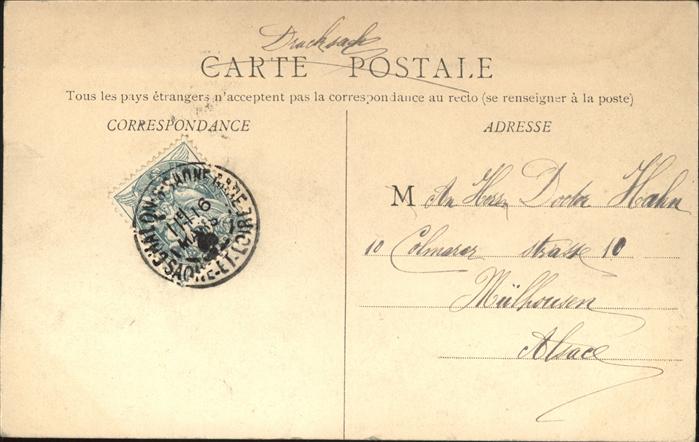 Drucksache
CARTE POSTALE
Tous les pays étrangers n'acceptent pas la correspondance au recto (se renseigner à la poste)
CORRESPONDANCE
ADRESSE
CHALON-S-SAONE GARE
16
SAONE-ET-LOIRE
M An Herrn Doctor Hahn
10 Colmarer strasse 10
Mülhausen
Alsace